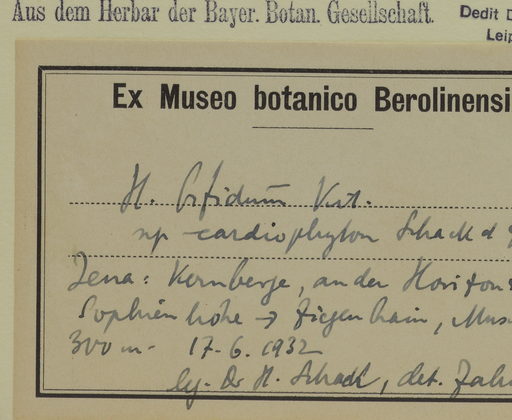 Aus dem Herbar der Bayer. Botan. Gesellschaft.
Dedit D
Leip
Ex Museo botanico Berolinensi
H. bifidum Kit.
ssp cardiophyton Schack d
Jena: Kernberge, an der Horizon
Sophienhöhe → Ziegenhain, Mus
300 m - 17.6.1932
lg. Dr H. Schack, det. Zahn